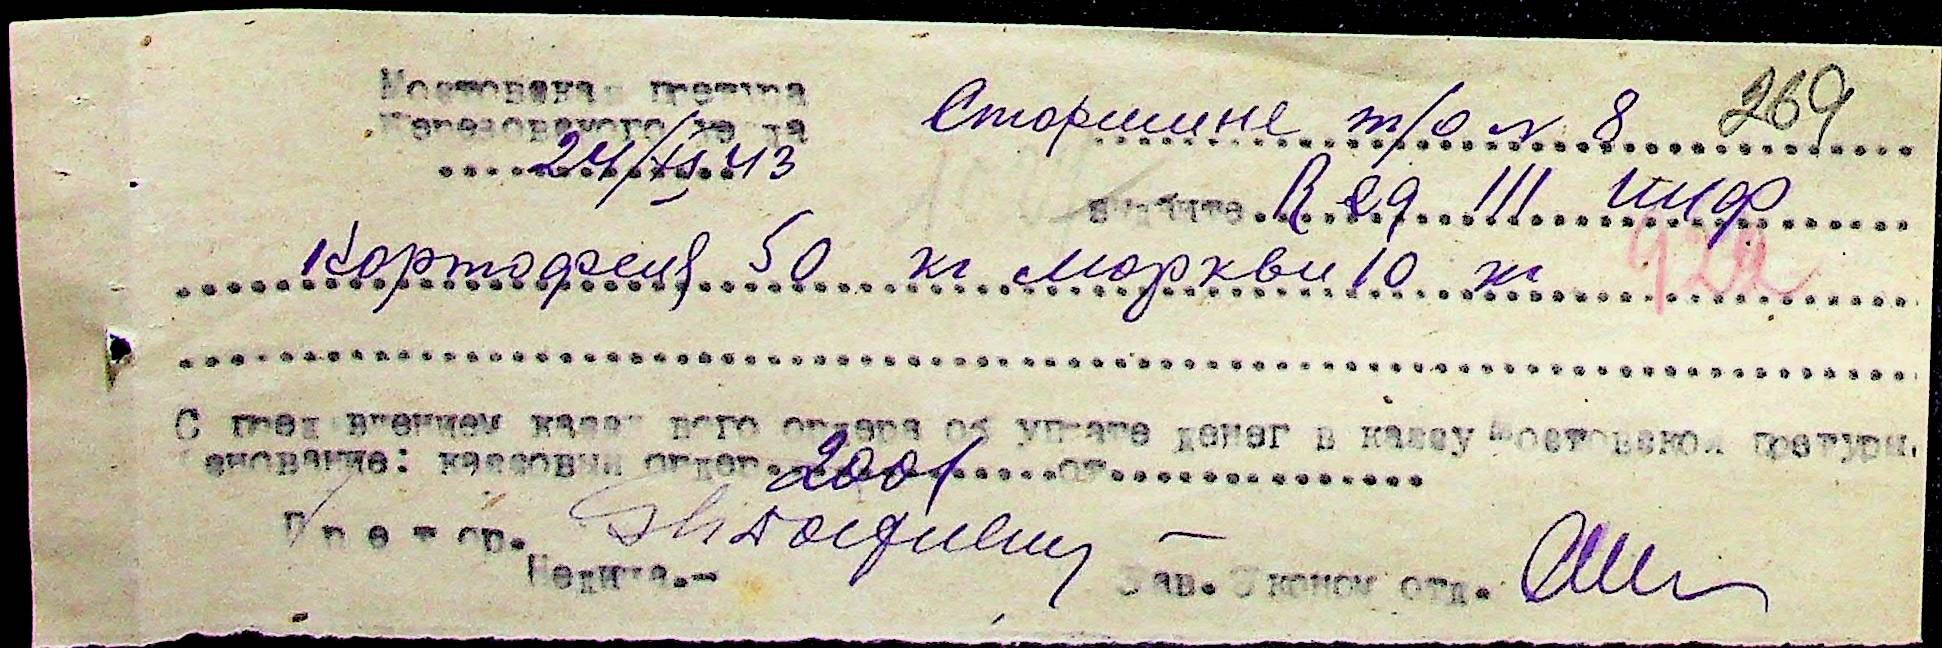 Мостовская претура
Березовского уезда
24/XI 43
Старшине т/о № 8 269
выдайте
Картофеля 50 кг моркви 10 кг
С пред влением касс вого ордера об уплате денег в кассу Мостовской претуры.
Основание: кассовый ордер 2001 от
Претор.
Недица.-
Зав. Эконом отд.